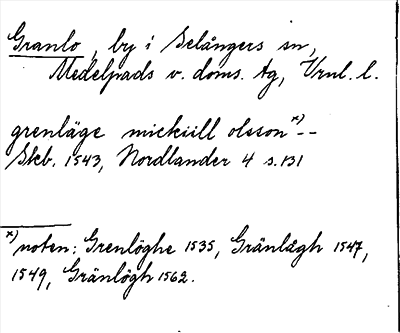 Granlo, by i Selångers sn,
Medelpads v. doms. tg, Vrnl. l.
grenläge mickiill olsson x) --
Skb. 1543, Nordlander 4 s. 131
x) noten: Grenlöghe 1535, Gränlægh 1547,
1549, Gränlögh 1562.